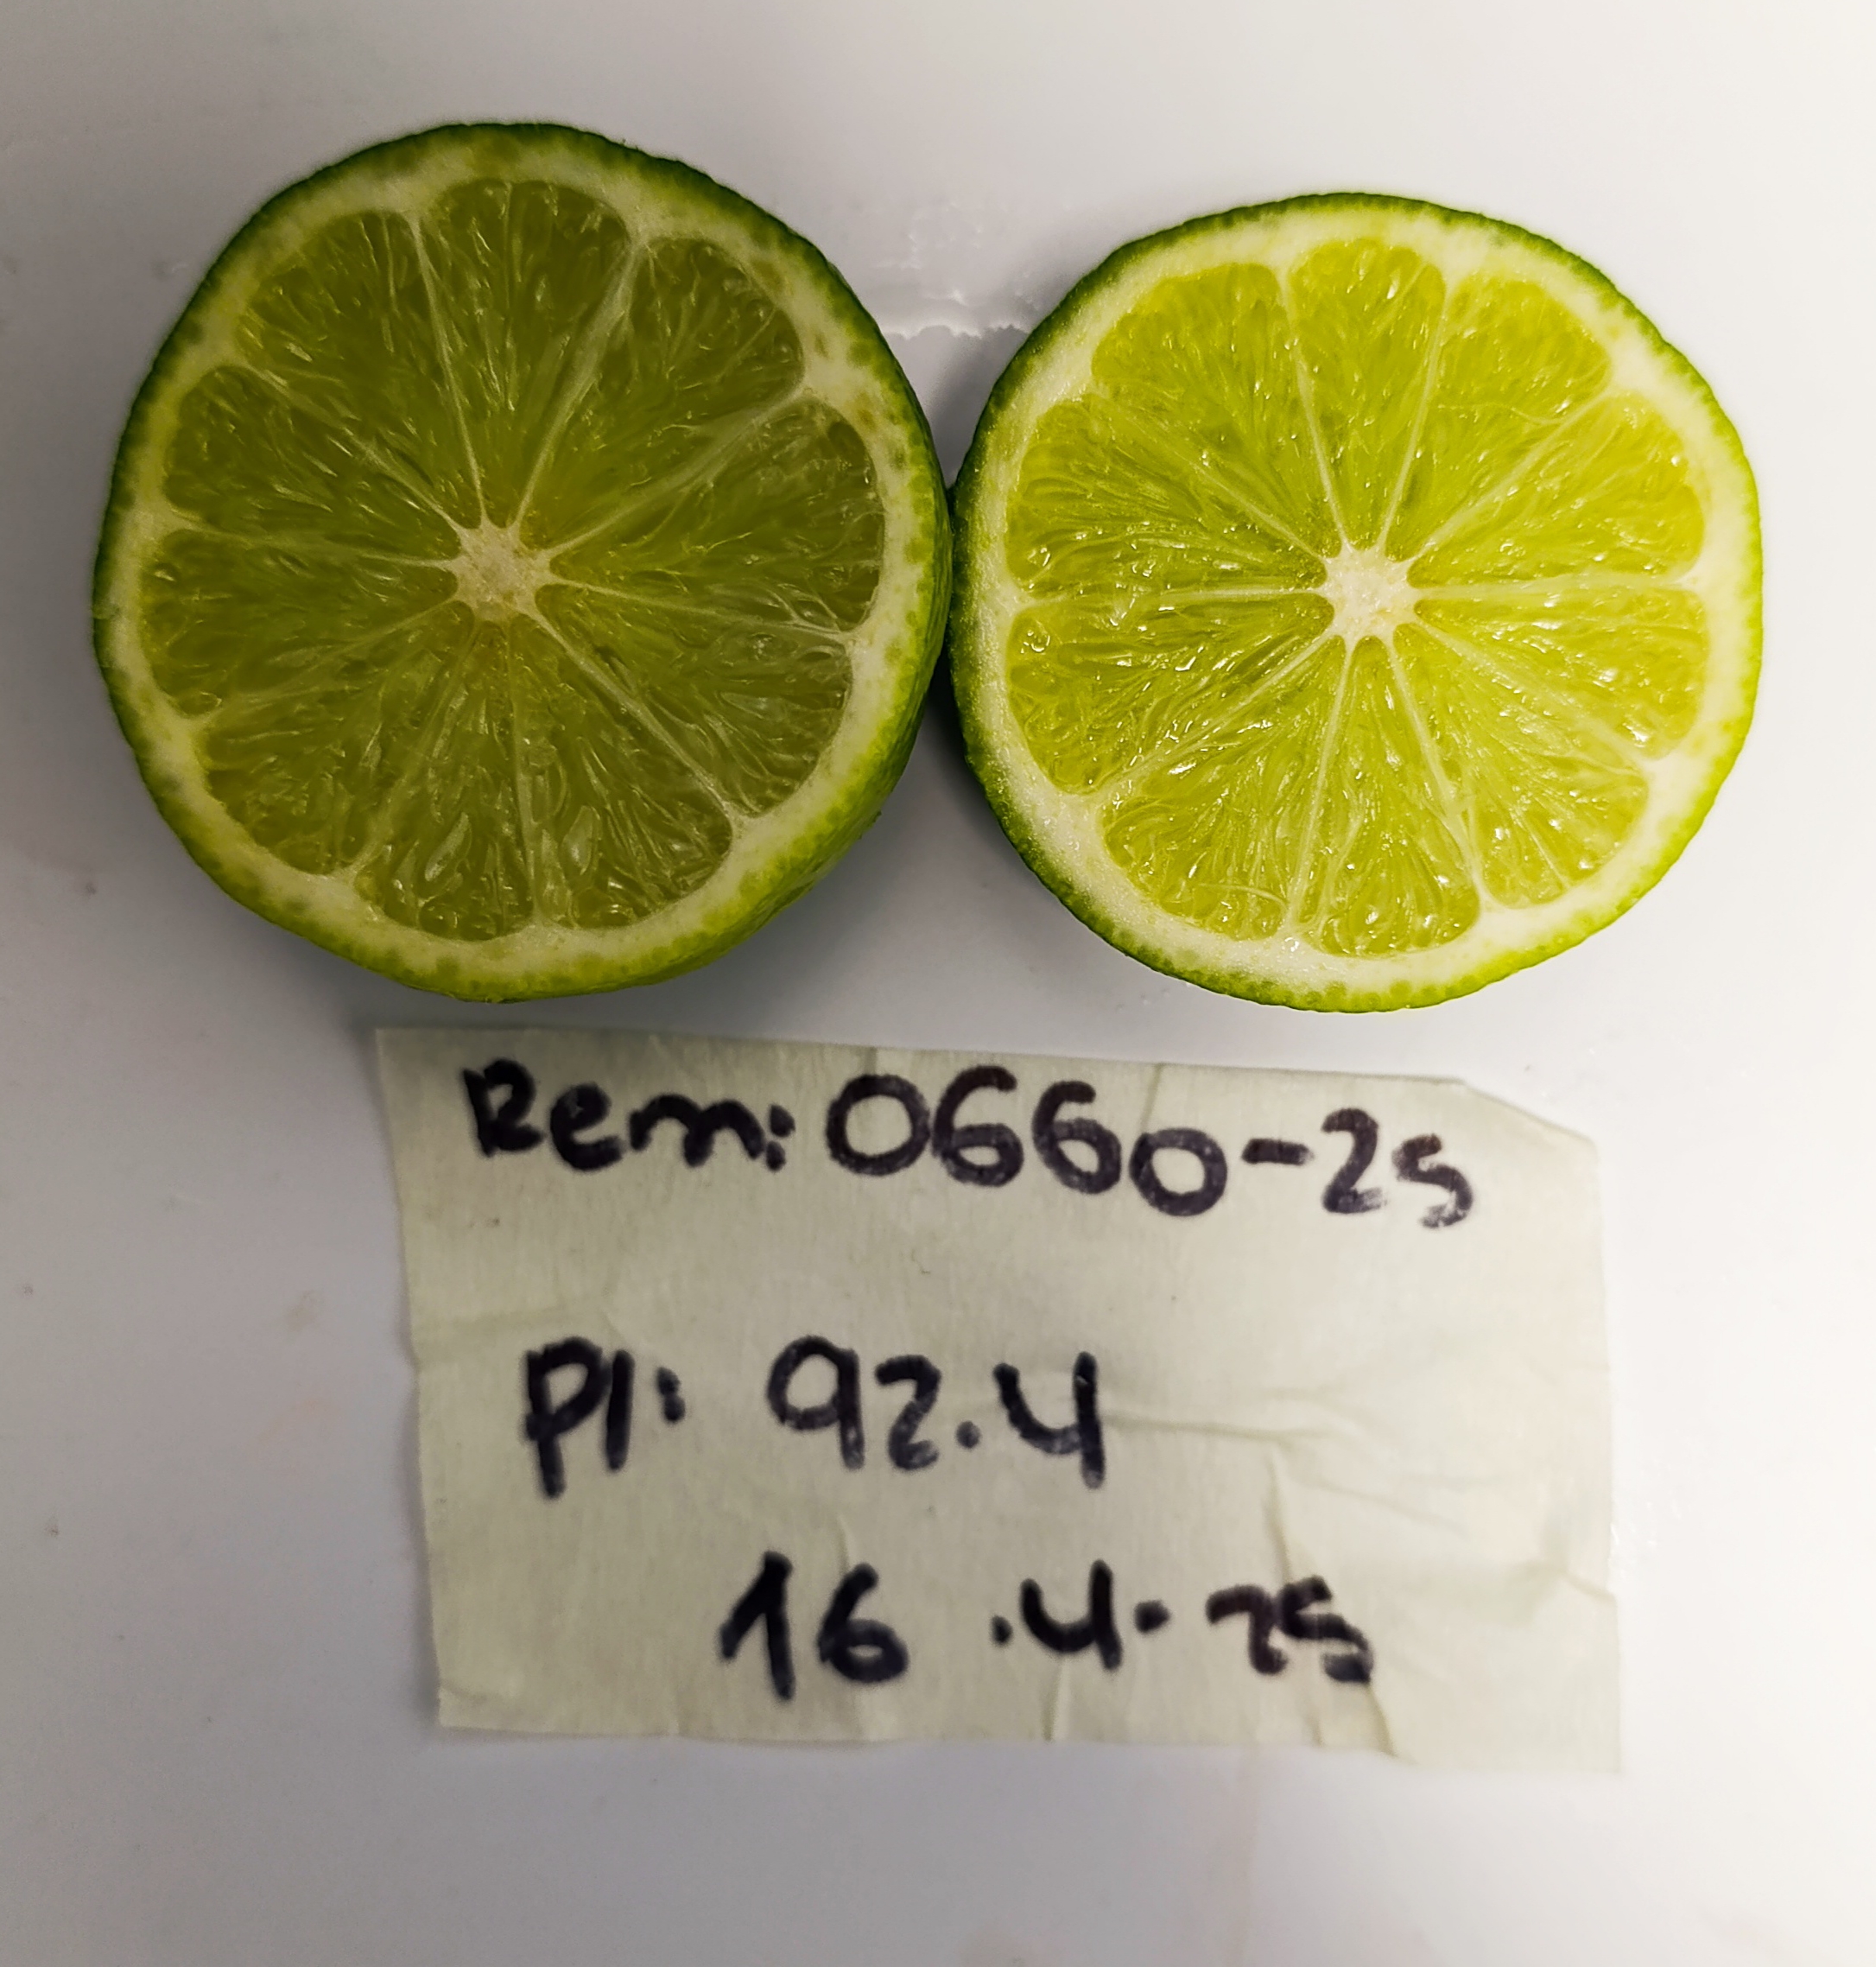 Rem: 0660-25
Pl: 92.4
16.4.25